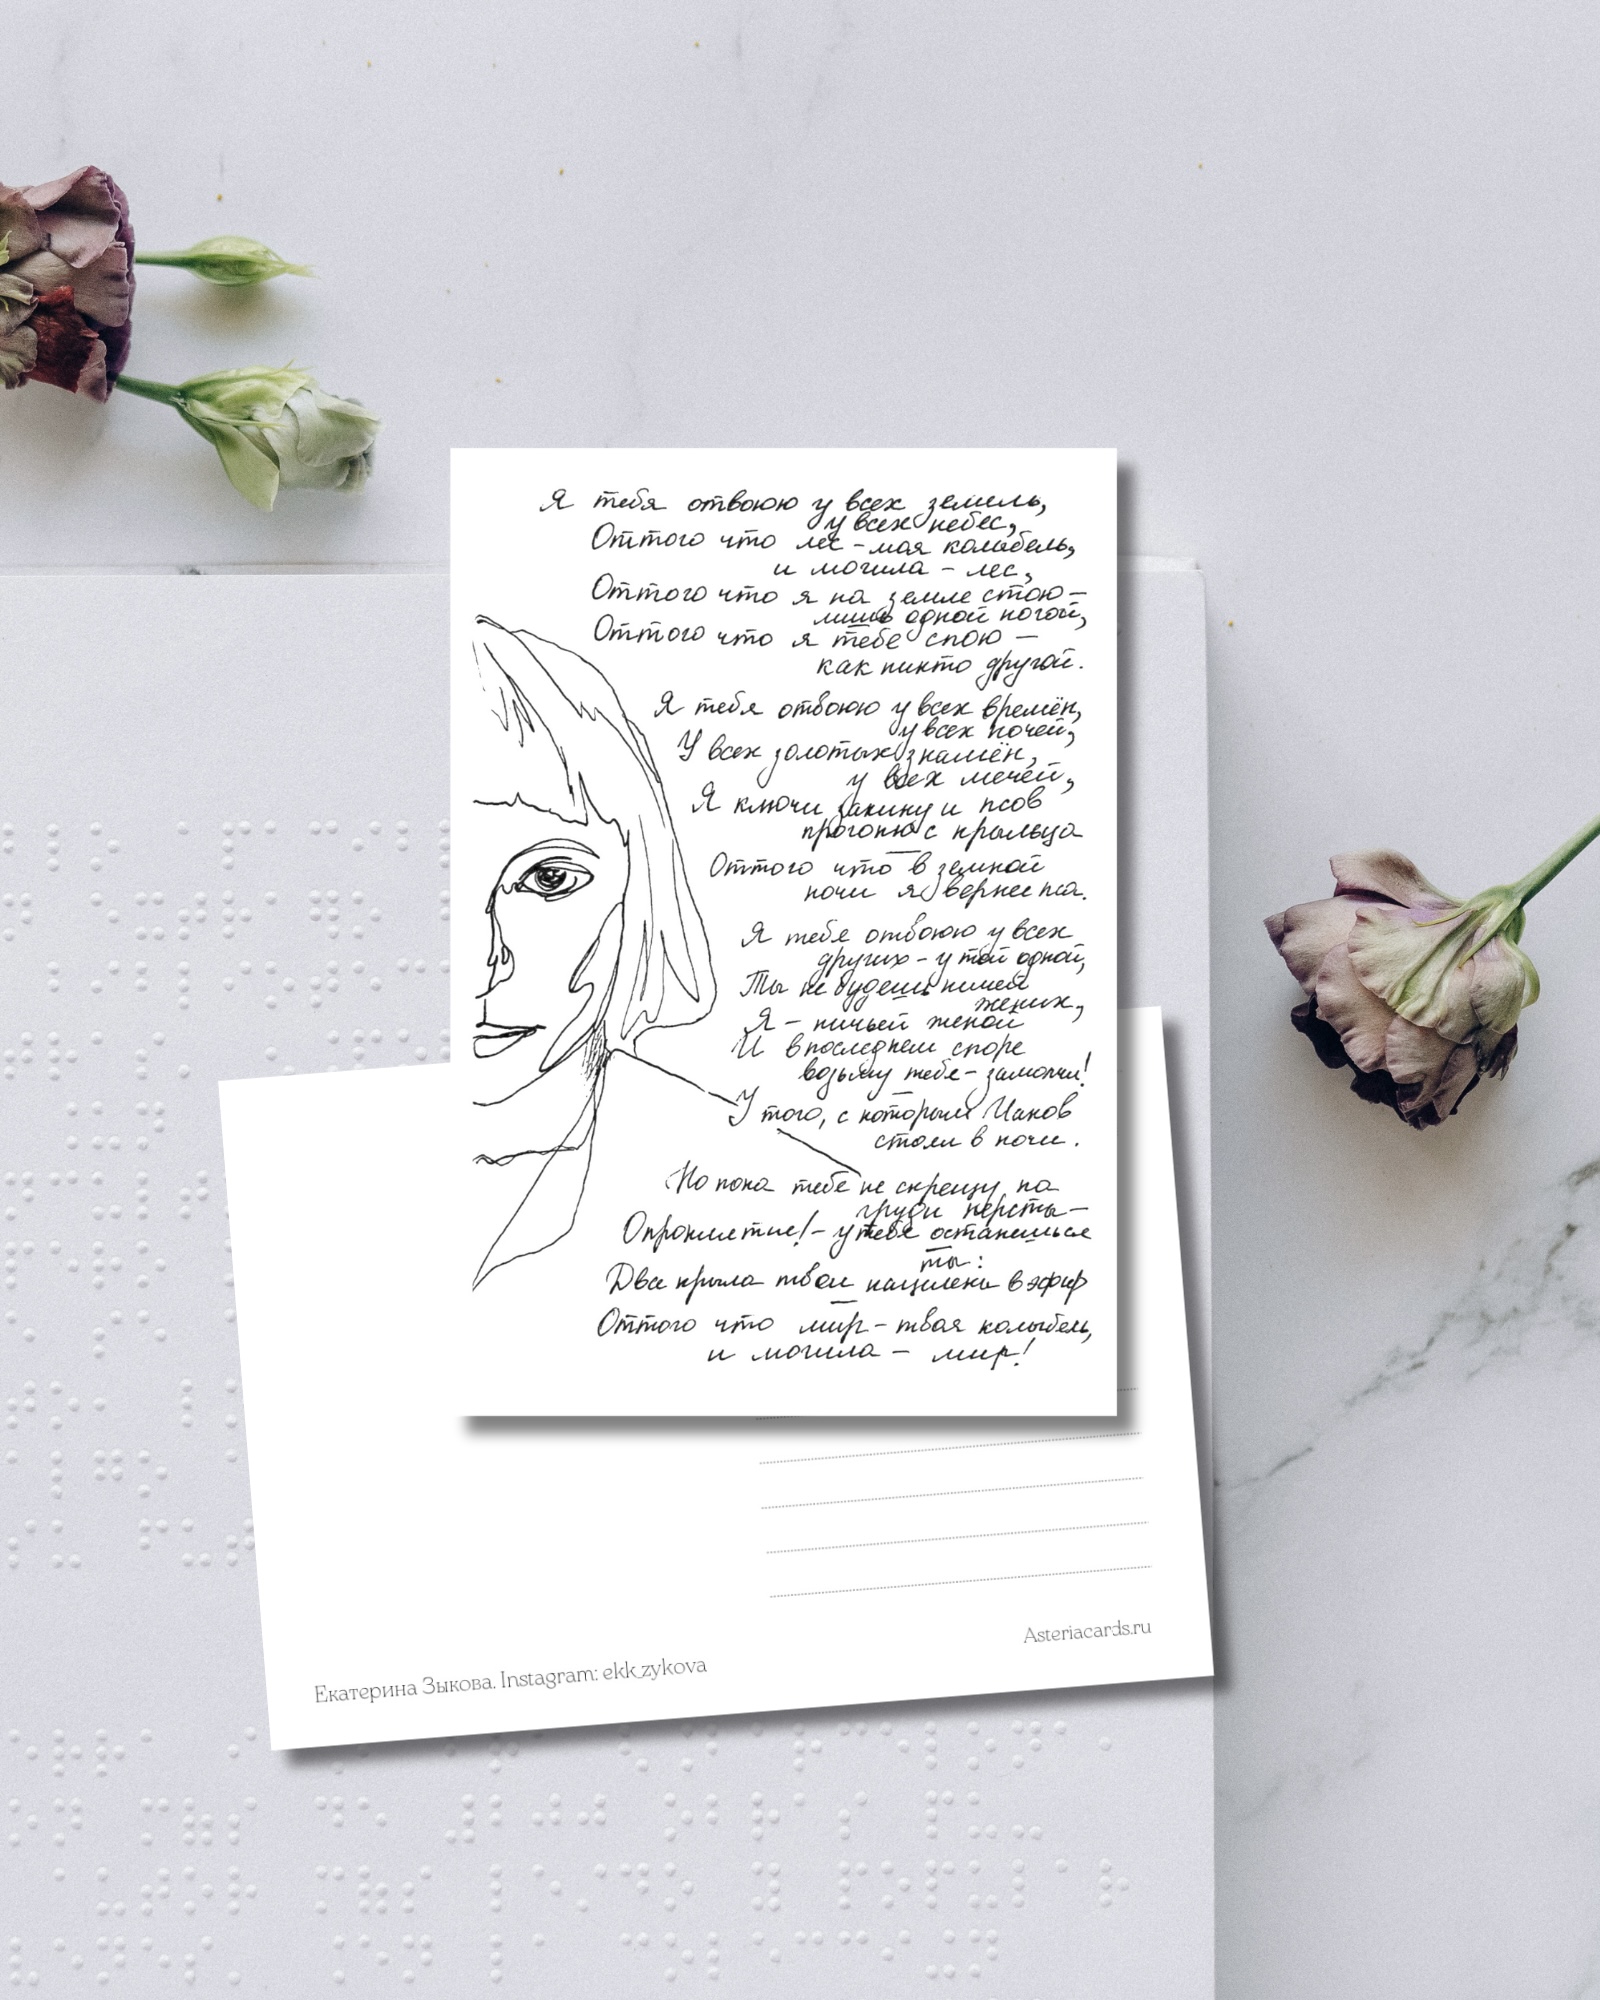 Я тебя отвоюю у всех земель,
у всех небес,
Оттого что лес - моя колыбель,
и могила - лес,
Оттого что я на земле стою —
лишь одной ногой,
Оттого что я тебе спою —
как никто другой.
Я тебя отвоюю у всех времён,
у всех ночей,
У всех золотых знамён,
у всех мечей,
Я ключи закину и псов
прогоню с крыльца
Оттого что в земной
ночи я вернее пса.
Я тебя отвоюю у всех
других - у той одной,
Ты не будешь ничей
жених,
Я - ничьей женой
И в последнем споре
возьму тебя - замолчи!
У того, с которым Иаков
стоял в ночи.
Но пока тебе не скрещу на
груди персты —
О проклятие! - у тебя останешься
ты:
Два крыла твои нацелены в эфир
Оттого что мир - твоя колыбель,
и могила - мир!
Asteriacards.ru
Екатерина Зыкова. Instagram: ekk_zykova